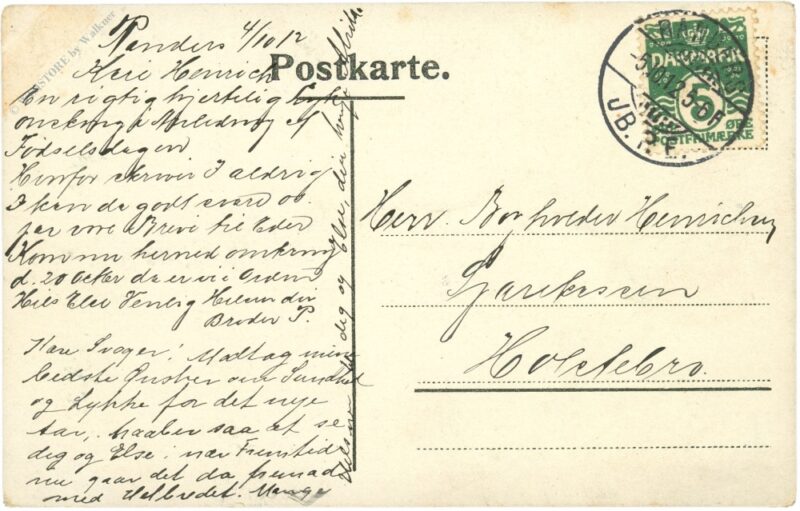 Randers 4/10 12
Postkarte.
Kære Henrich
En rigtig hjertelig Lykk
onskning i Anledning af
Fødselsdagen
Hvorfor skriver I aldrig
I kan da godt svare os
paa vore Breve til Eder
Kom nu herned omkring
d. 20 Octbr da er vi i Orden
Hils Else Venlig Hilsen din
Broder P.
Kære Svoger! Modtag mine
bedste Ønsker om Sundhed
og Lykke for det nye
Aar, haaber saa at se
dig og Else i nær Fremtid
nu gaar det da fremad
med Helbredet. Mange
Hilsner til dig og Else, din
DANMARK
5
ØRE
POSTFRIMÆRKE
RANDERS
-5.10.12.5-6 F
J.B.P.E.
Herr.
Holstebro.
© STORE by Walkner